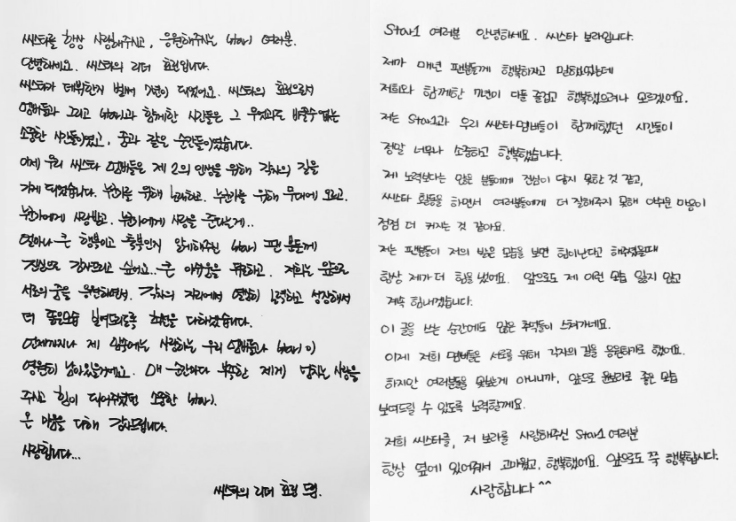 씨스타를 항상 사랑해주시고, 응원해주시는 star1 여러분.
안녕하세요. 씨스타의 리더 효린입니다.
씨스타가 데뷔한지 벌써 7년이 되었어요. 씨스타의 효린으로서
멤버들과 그리고 star1과 함께한 시간들은 그 무엇과도 바꿀수 없는
소중한 시간들이었고, 꿈과 같은 순간들이었습니다.
이제 우리 씨스타 멤버들은 제 2의 인생을 위해 각자의 길을
가게 되었습니다. 누군가를 위해 노래하고. 누군가를 위해 무대에 오르고.
누군가에게 사랑받고. 누군가에게 사랑을 준다는게..
얼마나 큰 행복이고 축복인지 알게해주신 star1 팬 분들께
진심으로 감사드리고 싶어요.. 큰 아쉬움을 뒤로하고. 저희는 앞으로
서로의 꿈을 응원하면서. 각자의 자리에서 열심히 노력하고 성장해서
더 좋은모습 보여드리도록 최선을 다하겠습니다.
언제까지나 제 마음속에는 사랑하는 우리 멤버들과 star1이
영원히 남아있을거에요. 매 순간마다 부족한 제게 넘치는 사랑을
주시고 힘이 되어주었던 소중한 star1.
온 마음을 다해 감사드립니다.
사랑합니다...
씨스타의 리더 효린 드림.
Star1 여러분 안녕하세요. 씨스타 보라입니다.
제가 매년 팬분들께 행복하자고 말했었는데
저희와 함께한 7년이 다들 즐겁고 행복했으려나 모르겠어요.
저는 Star1과 우리 씨스타 멤버들이 함께했던 시간들이
정말 너무나 소중하고 행복했습니다.
제 노력보다는 많은 분들에게 진심이 닿지 못한 것 같고,
씨스타 활동을 하면서 여러분들에게 더 잘해주지 못해 아쉬운 마음이
점점 더 커지는 것 같아요.
저는 팬분들이 저의 밝은 모습을 보면 힘이난다고 해주셨을때
항상 제가 더 힘을 냈어요. 앞으로도 제 이런 모습 잃지 않고
계속 힘내겠습니다.
이 글을 쓰는 순간에도 많은 추억들이 스쳐가네요.
이제 저희 멤버들은 서로를 위해 각자의 길을 응원하기로 했어요.
하지만 여러분들을 못보는게 아니니까, 앞으로 윤보라로 좋은 모습
보여드릴 수 있도록 노력할게요.
저희 씨스타를, 저 보라를 사랑해주신 Star1 여러분
항상 옆에 있어줘서 고마웠고, 행복했어요. 앞으로도 꼭 행복합시다.
사랑합니다 ^^